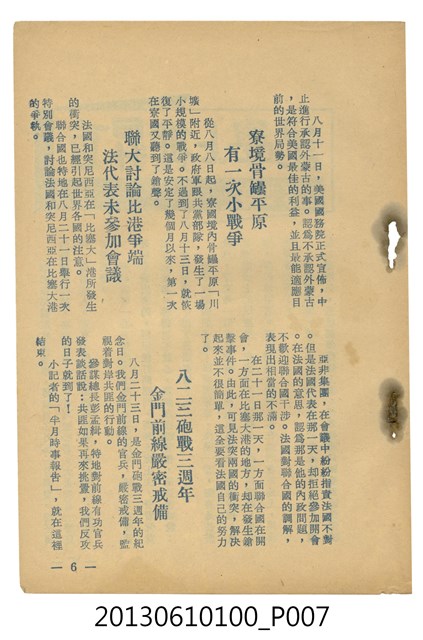 八月十一日，美國國務院正式宣佈，中
止進行承認外蒙古的事。認爲不承認外蒙古
，是符合美國最佳的利益，並且最能適應目
前的世界局勢。
寮境骨罐平原
有一次小戰爭
從八月八日起，寮國境內骨罐平原「川
壙」附近，政府軍跟共黨部隊，發生了一場
小規模的戰爭。不過到了八月十三日，就恢
復了平靜。這是安定了幾個月以來，第一次
在寮國又聽到了槍聲。
聯大討論比港爭端
法代表未參加會議
法國和突尼西亞在「比塞大」港所發生
的衝突，已經引起世界各國的注意。
聯合國也特地在八月二十一日舉行一次
特別會議，討論法國和突尼西亞在比塞大港
的爭執。
亞非集團，在會議中紛紛指責法國不對
。但是法國代表在那一天，却拒絕參加開會
。在法國的意思，認爲那是他的內政問題，
不歡迎聯合國干涉。法國對聯合國的調解，
表現出相當的不滿。
在二十一日那一天，一方面聯合國在開
會，一方面在比塞大港的地方，却在發生槍
擊事件。由此，可見法突兩國的衝突，解決
起來並不很簡單，這全要看法國自己的努力
了。
八二三砲戰三週年
金門前線嚴密戒備
八月二十三日，是金門砲戰三週年的紀
念日。我們金門前線的官兵，嚴密戒備，監
視着對岸共匪的行動。
參謀總長彭孟緝，特地對前線有功官兵
發表談話說：共匪如果再來挑釁，我們反攻
的日子就到了！
小記者的「半月時事報告」，就在這裡
結束。
— 6 —
20130610100_P007